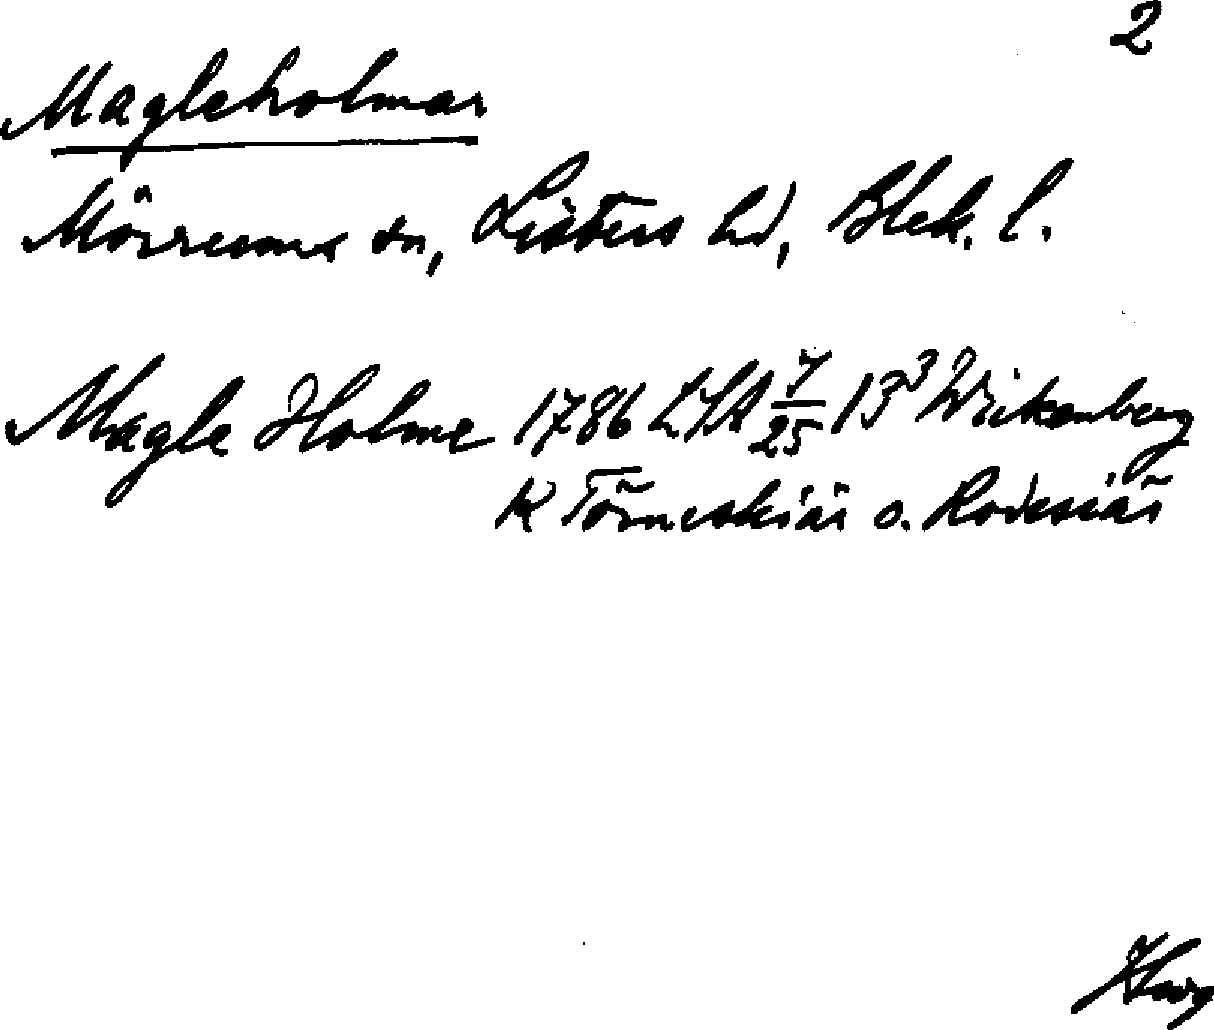 2
Magleholmar
Mörrums sn, Listers hd, Blek. l.
Magle Holme 1786 LSA 7/25 13³ Wickenberg
K Törneskiär o. Rodesiär